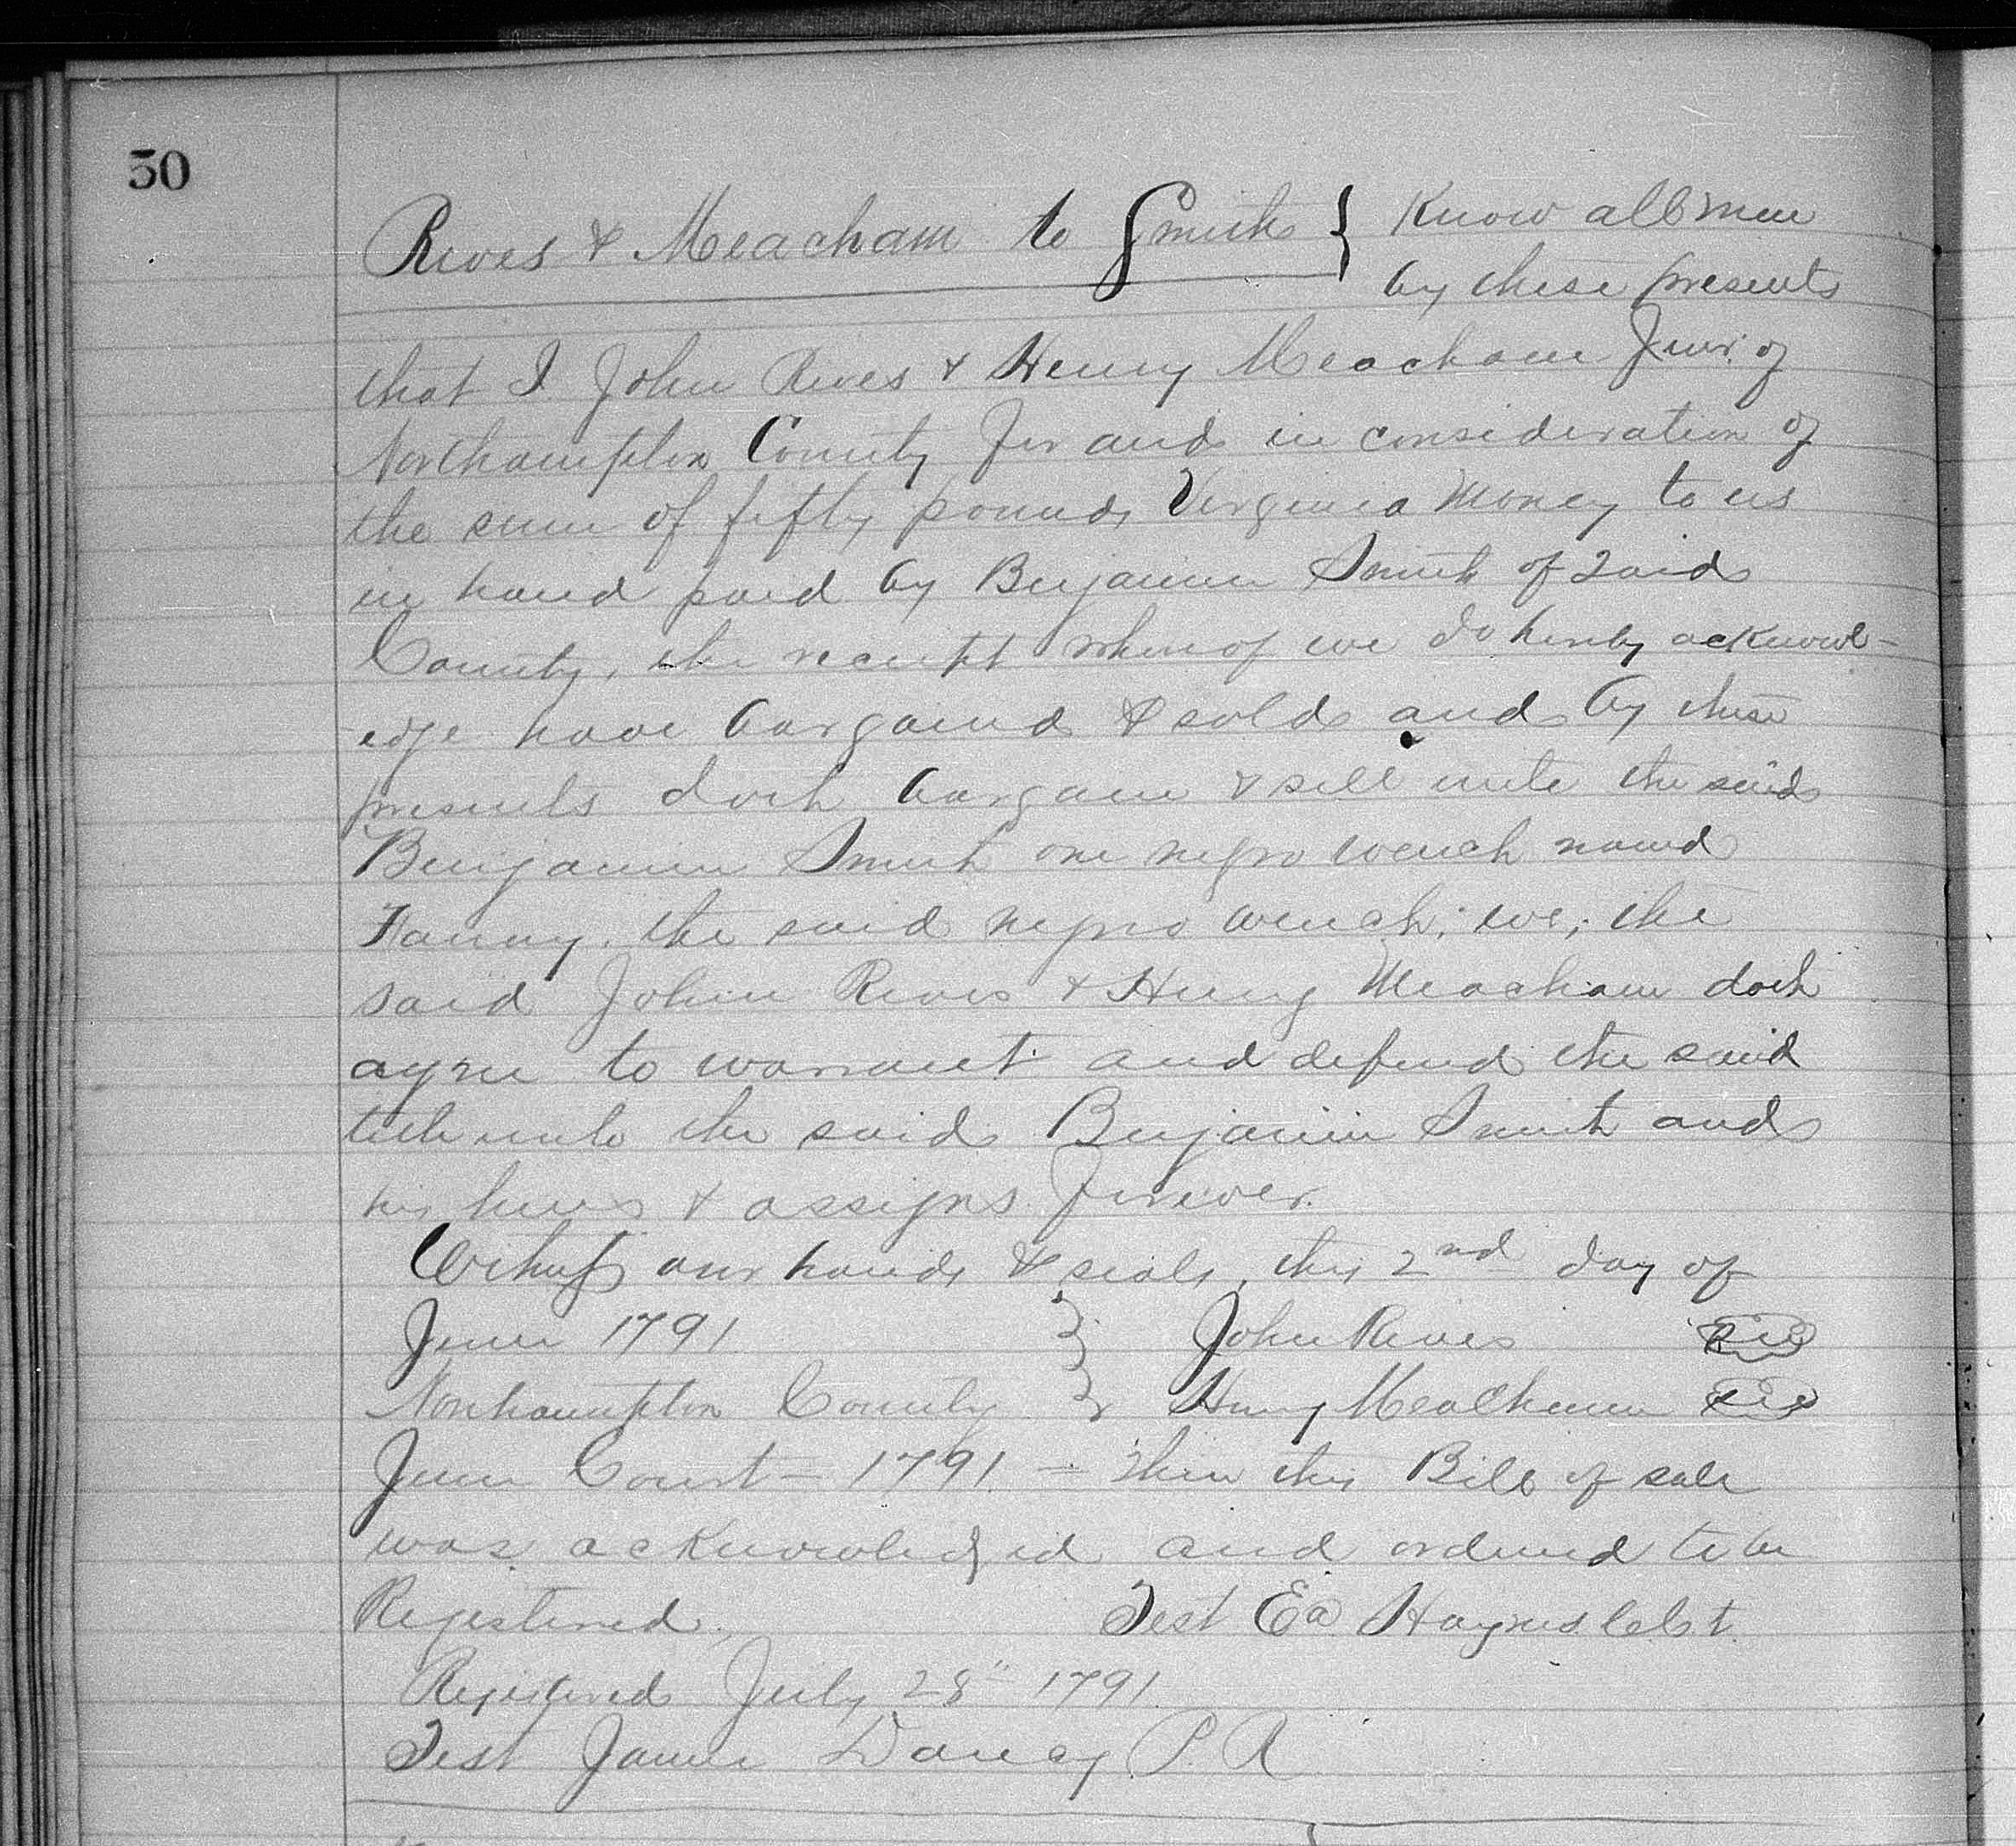 50
Rives & Meacham to Smith } Know all men
by these presents
that I John Rives & Henry Meacham Junr. of
Northampton County for and in consideration of
the sum of fifty pounds Virginia Money to us
in hand paid by Benjamin Smith of said
County, the receipt whereof we do hereby acknowl-
edge have bargaind & sold and by these
presents doth bargain & sell unto the said
Benjamin Smith one negro wench named
Fanny. the said negro wench; we; the
said John Rives & Henry Meacham doth
agree to warrant and defend the said
title unto the said Benjamin Smith and
his heirs & assigns forever.
Witness our hands & seals, this 2nd day of
June 1791 } John Rives
Northampton County } Henry Meacham
June Court – 1791 – Then this Bill of sale
was acknowledged and ordered to be
Registered, Test Ea Haynes Clk t.
Registered July 28" 1791.
Test James Dancy P. R